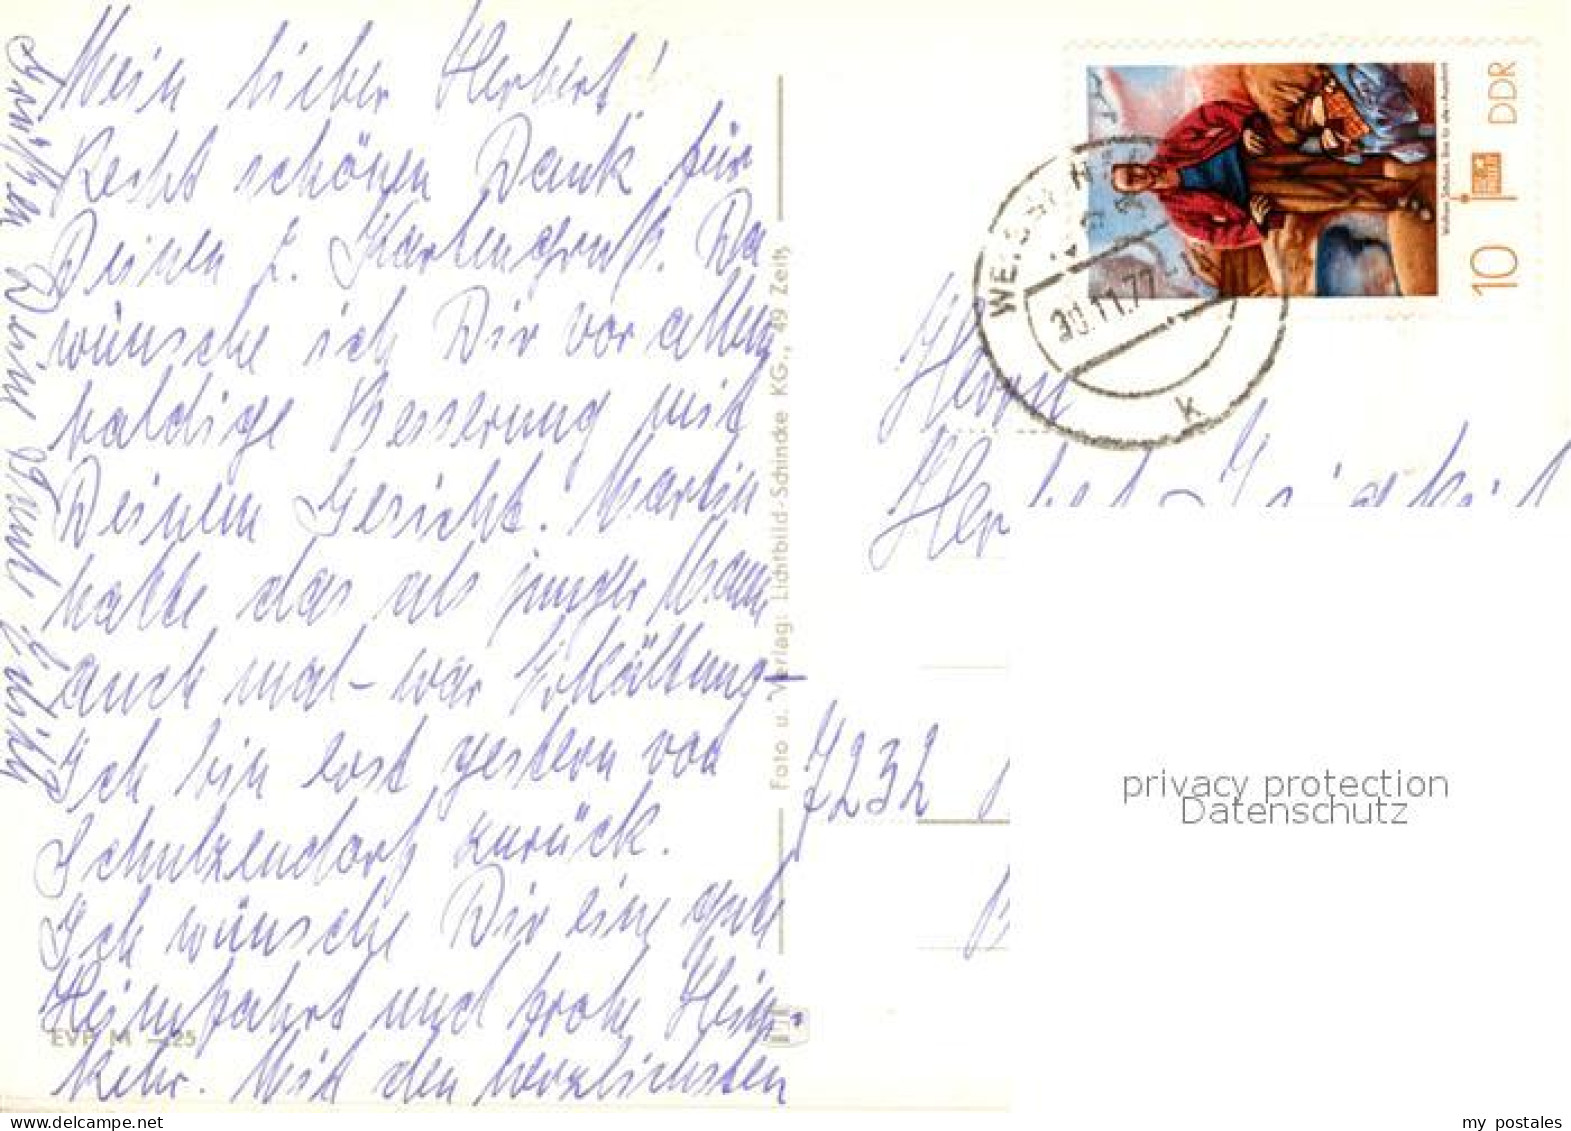 Mein lieber Herbert!
Recht schönen Dank für
Deinen l. Kartengruß. Da
wünsche ich Dir vor allem
baldige Besserung mit
Deinem Gesicht. Martin
hatte das als junger Mann
auch mal – war Erkältung –
Ich bin erst gestern von
Schulzendorf zurück.
Ich wünsche Dir eine gute
Heimfahrt und frohe Heim-
kehr. Mit den herzlichsten
Grüßen Deine Tante
EVP M –,25
Foto u. Verlag: Lichtbild-Schincke KG., 49 Zeitz
10 DDR
30.11.77
k
Herrn
7232
privacy protection
Datenschutz
my postales